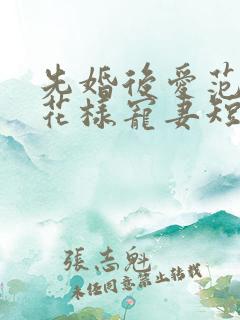 先婚後愛范
花樣寵妻短
張志魁
未經同意禁止轉載